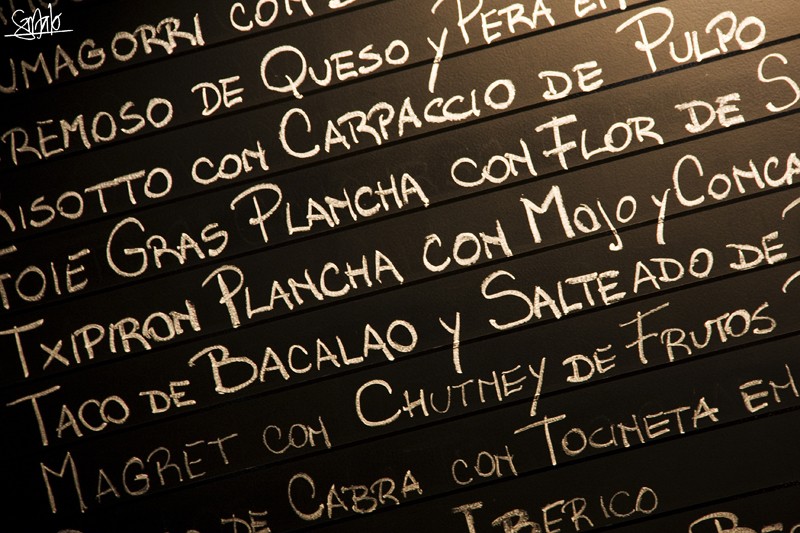 UMAGORRI CON
REMOSO DE QUESO Y PERA EN
RISOTTO CON CARPACCIO DE PULPO
FOIE GRAS PLANCHA CON FLOR DE S
TXIPIRON PLANCHA CON MOJO Y CONCA
TACO DE BACALAO Y SALTEADO DE
MAGRET CON CHUTNEY DE FRUTOS
DE CABRA CON TOCINETA EN
IBERICO